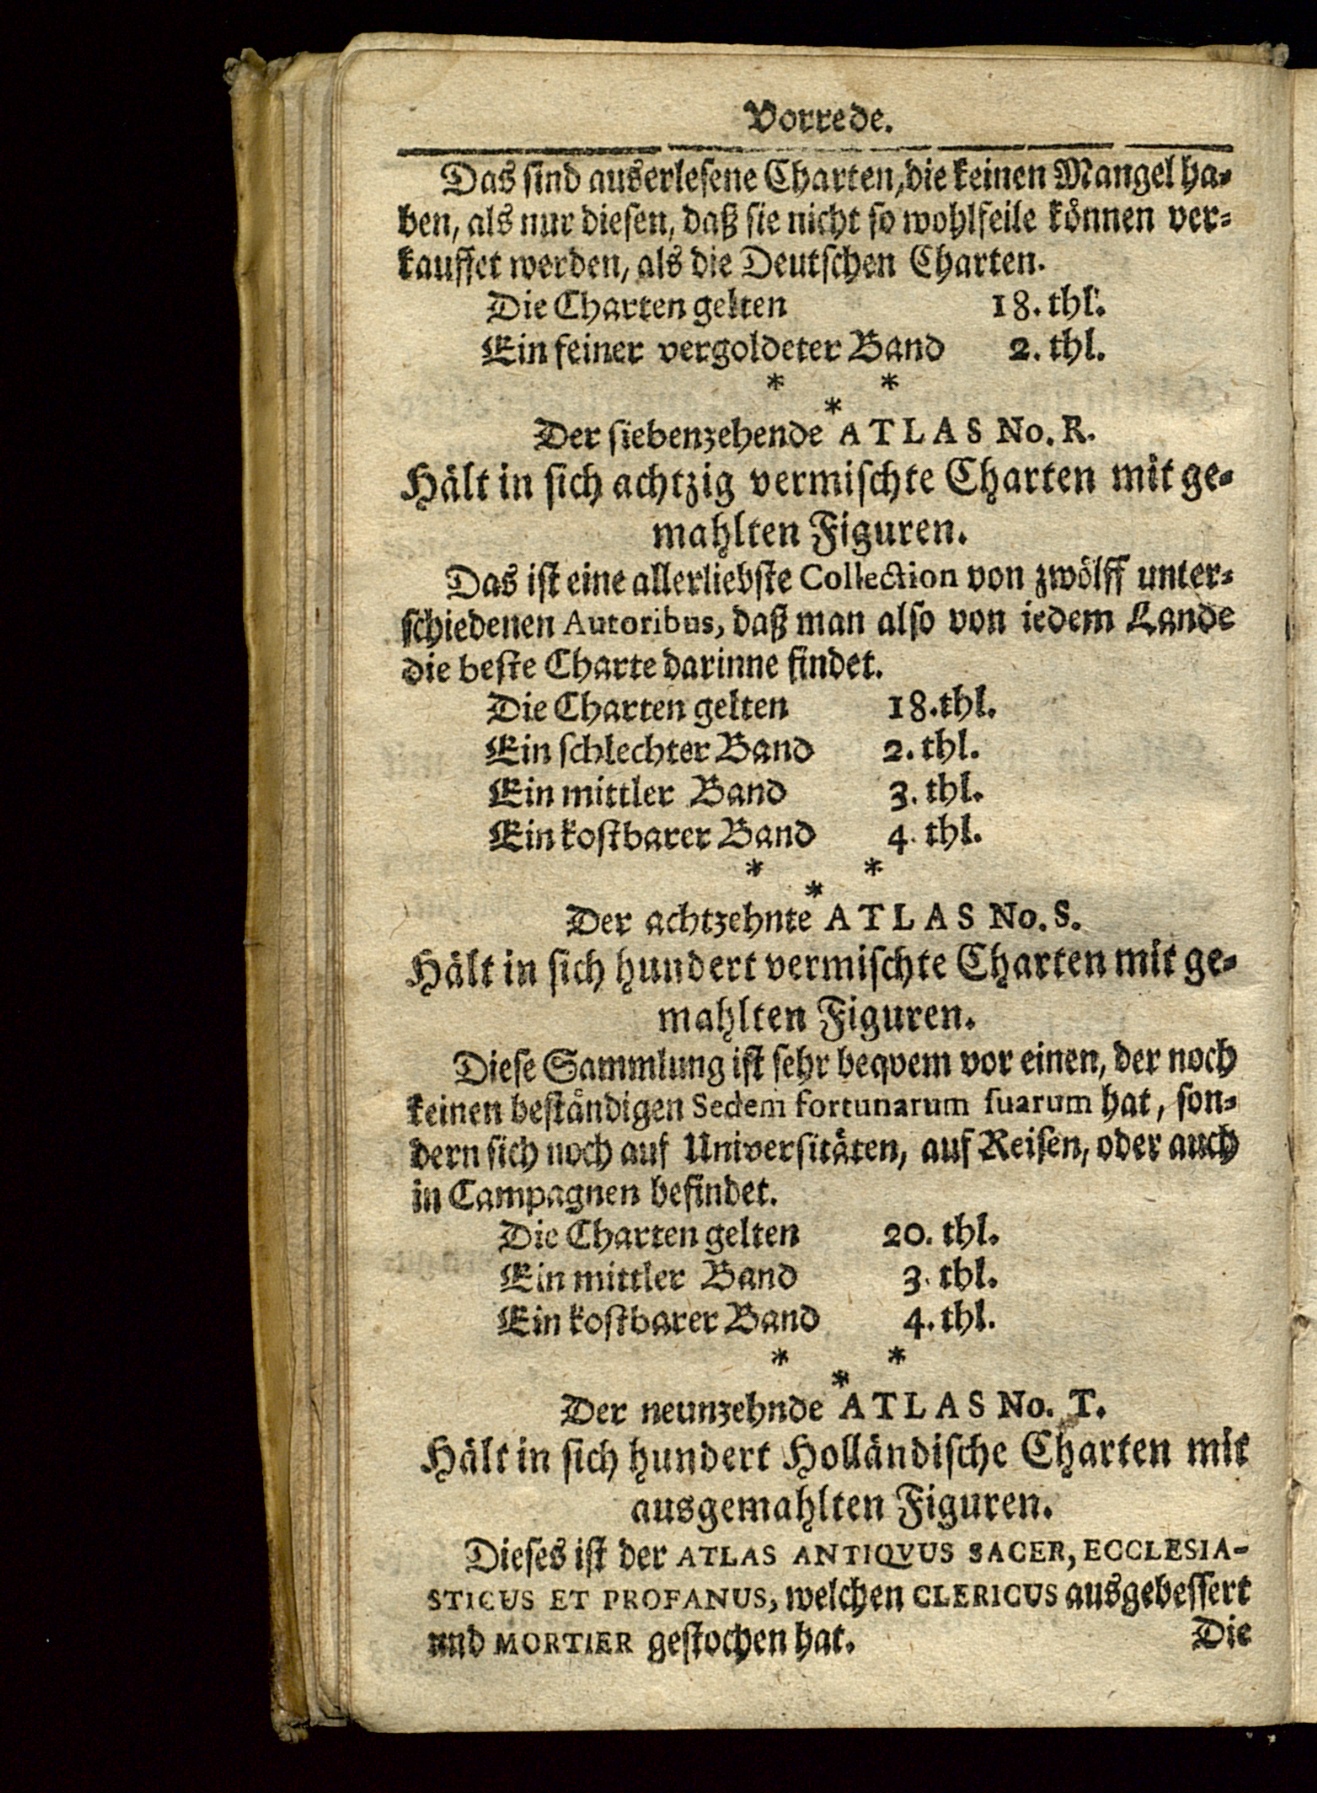 Vorrede.
Das sind auserlesene Charten, die keinen Mangel ha-
ben, als nur diesen, daß sie nicht so wohlfeile können ver-
kauffet werden, als die Deutschen Charten.
Die Charten gelten 18. thl.
Ein feiner vergoldeter Band 2. thl.
* * *
Der siebenzehende ATLAS No. R.
Hält in sich achtzig vermischte Charten mit ge-
mahlten Figuren.
Das ist eine allerliebste Collection von zwölff unter-
schiedenen Autoribus, daß man also von iedem Lande
die beste Charte darinne findet.
Die Charten gelten 18. thl.
Ein schlechter Band 2. thl.
Ein mittler Band 3. thl.
Ein kostbarer Band 4. thl.
* * *
Der achtzehnte ATLAS No. S.
Hält in sich hundert vermischte Charten mit ge-
mahlten Figuren.
Diese Sammlung ist sehr beqvem vor einen, der noch
keinen beständigen Sedem fortunarum suarum hat, son-
dern sich noch auf Universitäten, auf Reisen, oder auch
in Campagnen befindet.
Die Charten gelten 20. thl.
Ein mittler Band 3. thl.
Ein kostbarer Band 4. thl.
* * *
Der neunzehnde ATLAS No. T.
Hält in sich hundert Holländische Charten mit
ausgemahlten Figuren.
Dieses ist der ATLAS ANTIQVUS SACER, ECCLESIA-
STICUS ET PROFANUS, welchen CLERICUS ausgebessert
und MORTIER gestochen hat.
Die